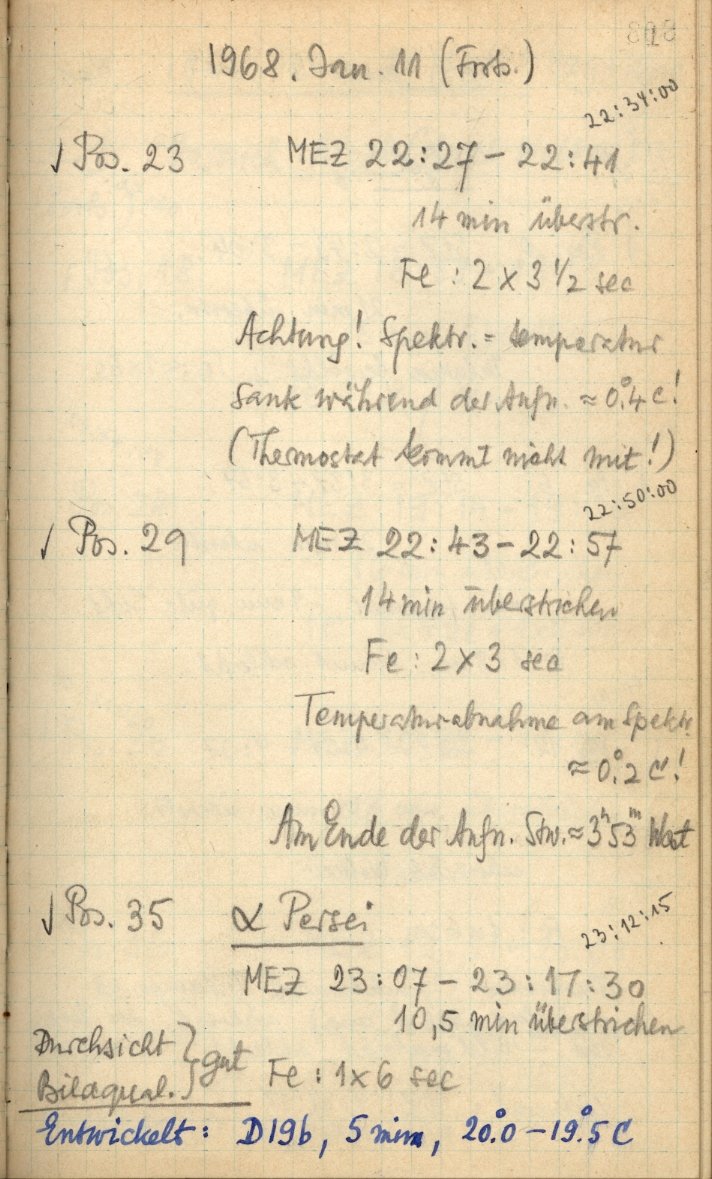 808
1968. Jan. 11 (Forts.)
22:34:00
√ Pos. 23 MEZ 22:27 – 22:41
14 min überstr.
Fe : 2 x 3 1/2 sec
Achtung! Spektr. = temperatur
sank während der Aufn. ≈ 0.°4 C!
(Thermostat kommt nicht mit!)
22:50:00
√ Pos. 29 MEZ 22:43 – 22:57
14 min überstrichen
Fe : 2 x 3 sec
Temperaturabnahme am Spektr.
≈ 0.°2 C!
Am Ende der Aufn. Stw. ≈ 3ʰ53ᵐ West
√ Pos. 35 α Persei
23:12:15
MEZ 23:07 – 23:17:30
10,5 min überstrichen
Durchsicht } gut
Bildqual. }
Fe : 1x6 sec
Entwickelt: D19b, 5 min, 20.°0 – 19.°5 C